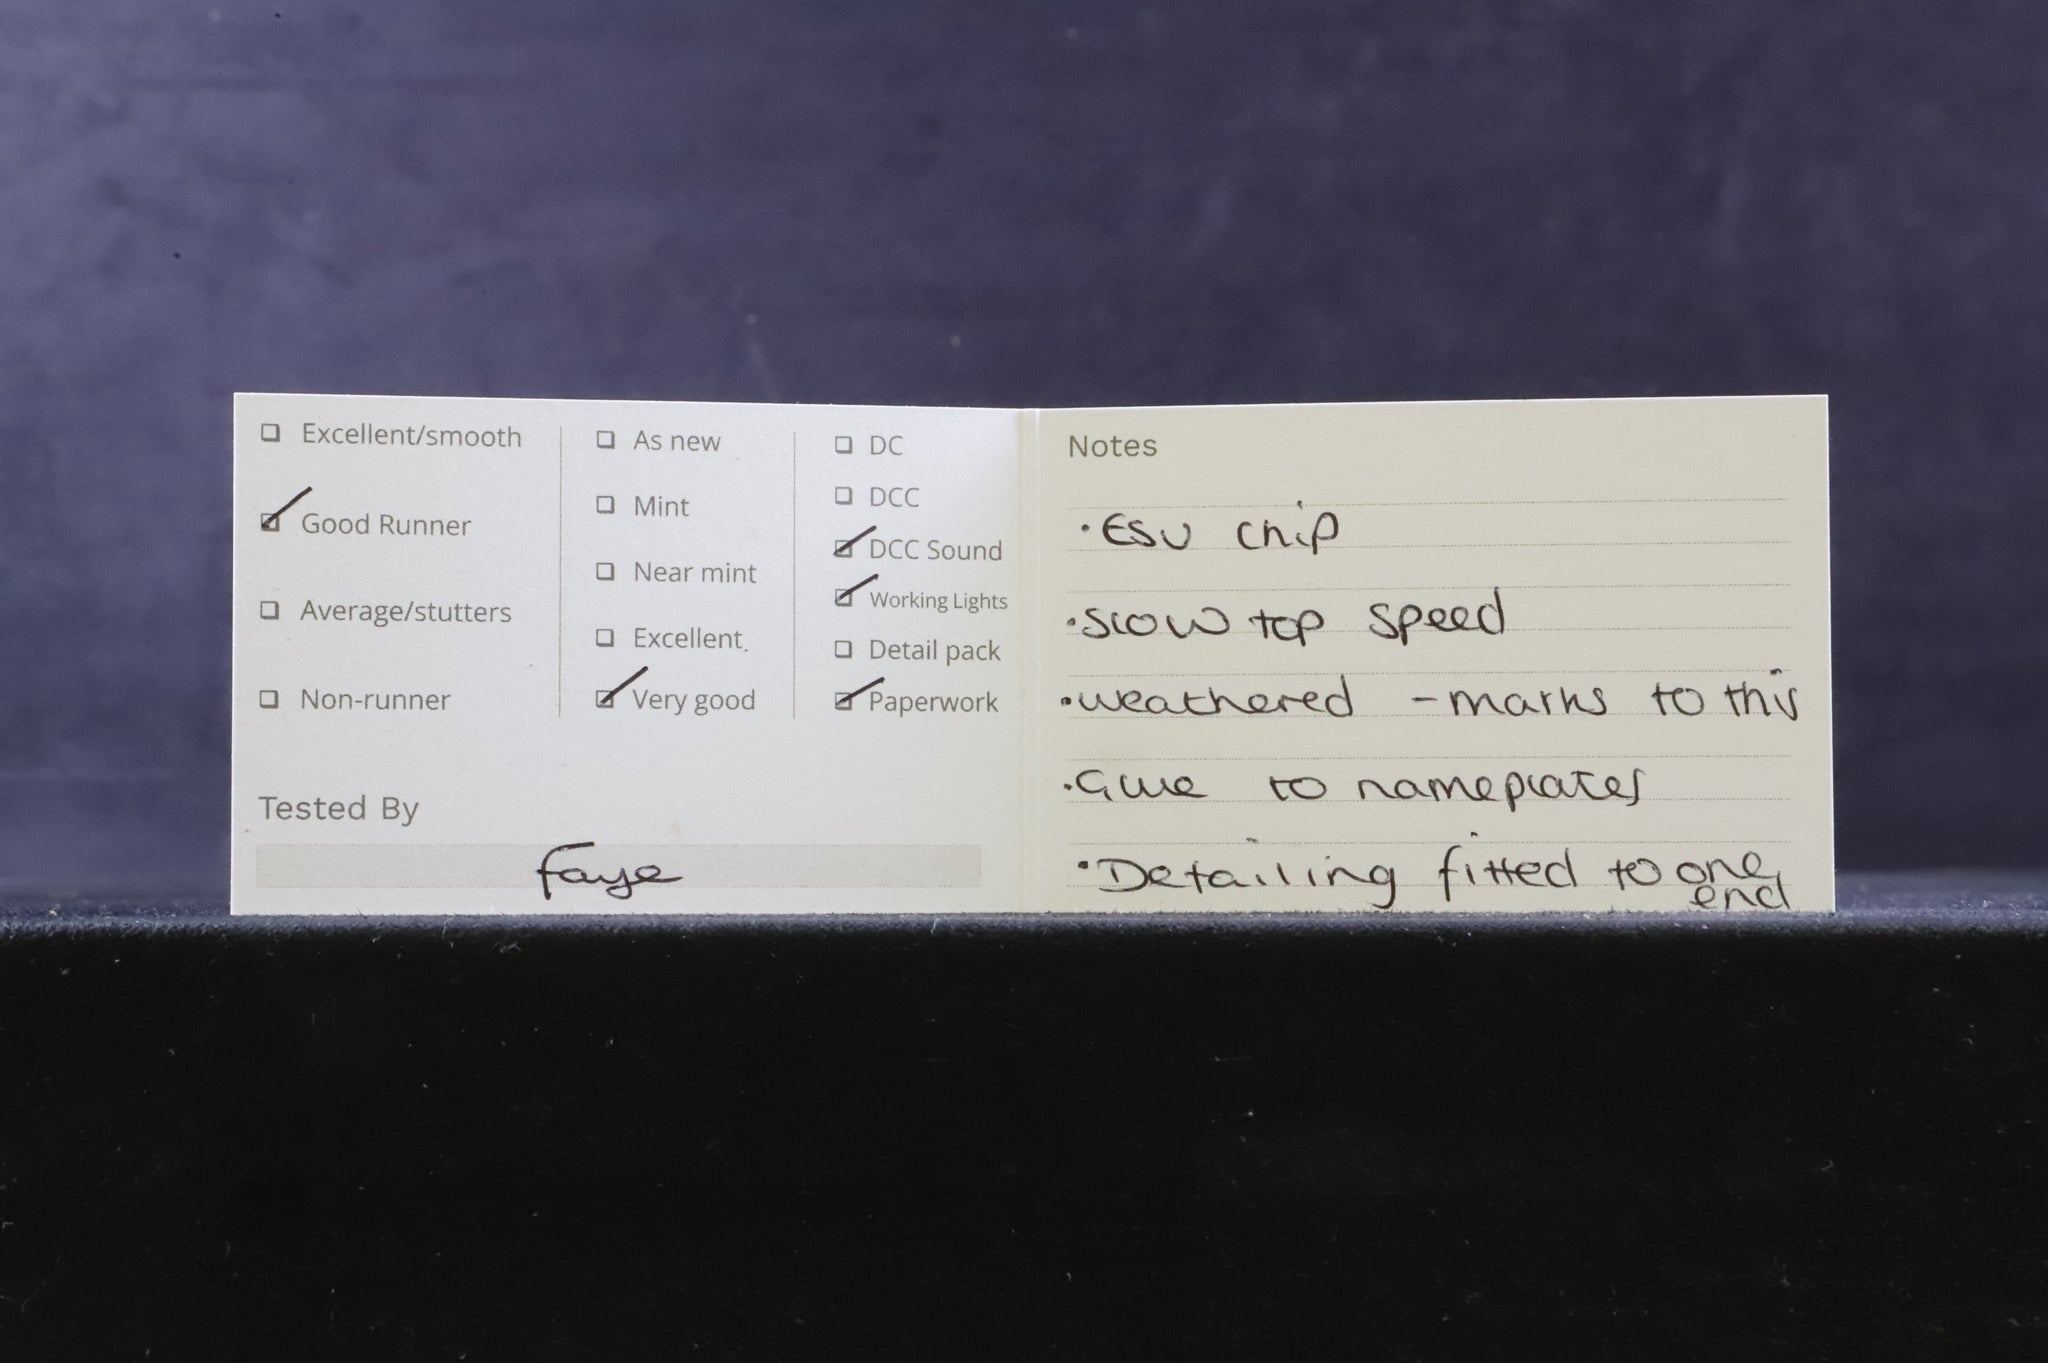 Excellent/smooth
Good Runner
Average/stutters
Non-runner
As new
Mint
Near mint
Excellent
Very good
DC
DCC
DCC Sound
Working Lights
Detail pack
Paperwork
Tested By
Faye
Notes
• ESU chip
• Slow top speed
• weathered - marks to this
• Glue to nameplates
• Detailing fitted to one
end